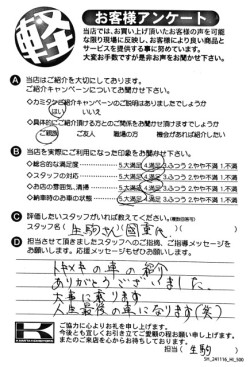 軽
お客様アンケート
当店では、お買い上げ頂いたお客様の声を可能
な限り現場に反映し、お客様により良い商品と
サービスを提供する事に努めています。
大変お手数ですが是非お声をお聞かせ下さい。
A 当店はご紹介を大切にしております。
ご紹介キャンペーンについてお聞かせ下さい。
ご紹介キャンペーンのご説明はありましたでしょうか
はい いいえ
○具体的にご紹介頂ける方とのご関係をお聞かせ頂けますでしょうか
ご親族 ご友人 職場の方 機会があれば紹介したい
B 当店を実際にご利用になった印象をお聞かせ下さい。
○総合的な満足度 5.大満足 4.満足 3.ふつう 2.やや不満 1.不満
○スタッフの対応 5.大満足 4.満足 3.ふつう 2.やや不満 1.不満
○お店の雰囲気、清掃 5.大満足 4.満足 3.ふつう 2.やや不満 1.不満
○納車時のお車の状態 5.大満足 4.満足 3.ふつう 2.やや不満 1.不満
C 評価したいスタッフがいれば教えてください。(複数回答可)
スタッフ名( 生駒さん
D 担当させて頂きましたスタッフへのご指摘、ご指導メッセージを
お願いします。応援メッセージもぜひお願いします。
の車の紹介
ありがとうございました。
大事に乗ります
人生最後の車になります(笑)
K
ご協力に心よりお礼を申し上げます。
今後とも宜しくお引き立てご愛顧の程お願い申し上げます。
またのご来店を心からお待ちしております。
担当( 生駒 )